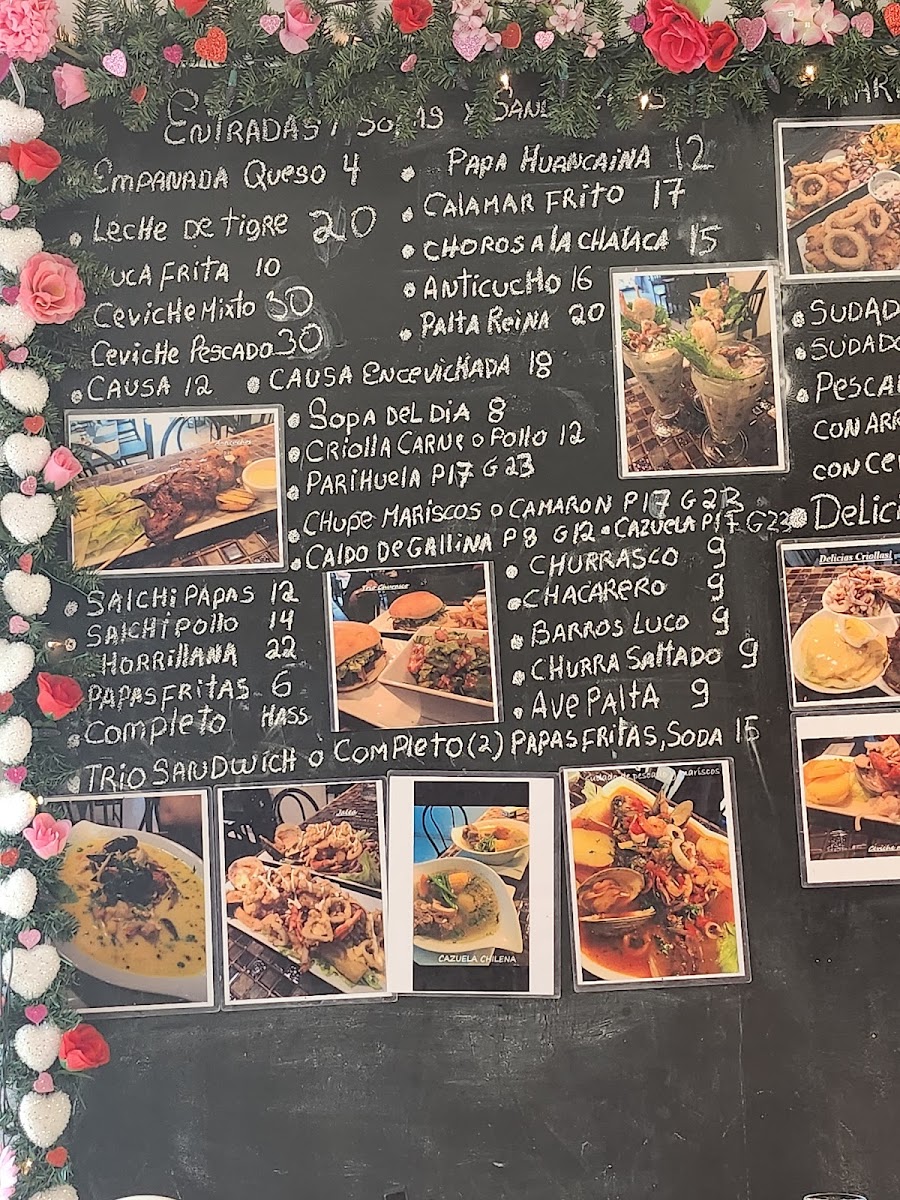 ENTRADAS, SOPAS Y
EMPANADA QUESO 4
LECHE DE TIGRE 20
YUCA FRITA 10
CEVICHE MIXTO 30
CEVICHE PESCADO 30
CAUSA 12
PAPA HUANCAINA 12
CALAMAR FRITO 17
CHOROS A LA CHALACA 15
ANTICUCHO 16
PALTA REINA 20
CAUSA ENCEVICHADA 18
SOPA DEL DIA 8
CRIOLLA CARNE O POLLO 12
PARIHUELA P17 G23
CHUPE MARISCOS O CAMARON P17 G23
CALDO DE GALLINA P8 G12 • CAZUELA P17 G23
SALCHIPAPAS 12
SALCHIPOLLO 14
CHORRILLANA 22
PAPAS FRITAS 6
COMPLETO HASS
CHURRASCO 9
CHACARERO 9
BARROS LUCO 9
CHURRA SALTADO 9
AVE PALTA 9
TRIO SANDWICH O COMPLETO (2) PAPAS FRITAS, SODA 15
SUDAD
SUDADO
PESCA
CON ARR
CON CE
DELICI
Delicias Criollas!
Jalea
CAZUELA CHILENA